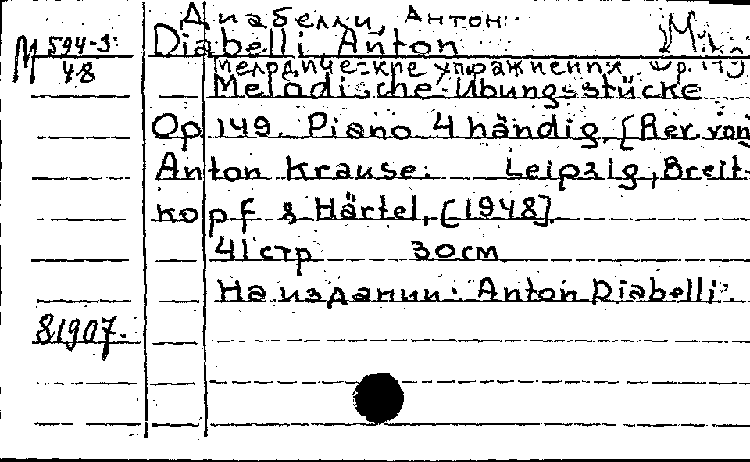 Диабелли, Антон
М 594-3
48
Diabelli, Anton
Мелодические упражнения. Ор. 149
Melodische Übungsstücke
Op 149. Piano 4 händig. [Rev. von
Anton Krause. Leipzig, Breit-
kopf & Härtel, [1948]
41 стр 30 см
На издании: Anton Diabelli
81907.